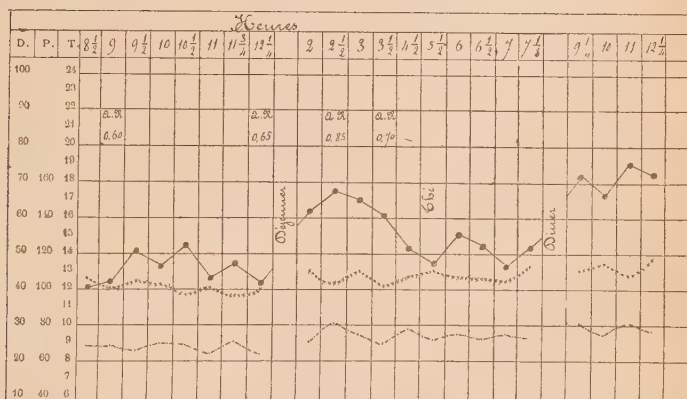 Heures
D. P. T. 8 1/2 9 9 1/2 10 10 1/2 11 11 3/4 12 1/4 2 2 1/2 3 3 1/2 4 1/2 5 1/2 6 6 1/2 7 7 1/2 9 1/4 10 11 12 1/4
100 24
23
90 22
21
80 20
19
70 160 18
17
60 140 16
15
50 120 14
13
40 100 12
11
30 80 10
9
20 60 8
7
10 40 6
0,60 0,65 0,85 0,70
Déjeuner
Thé
Diner